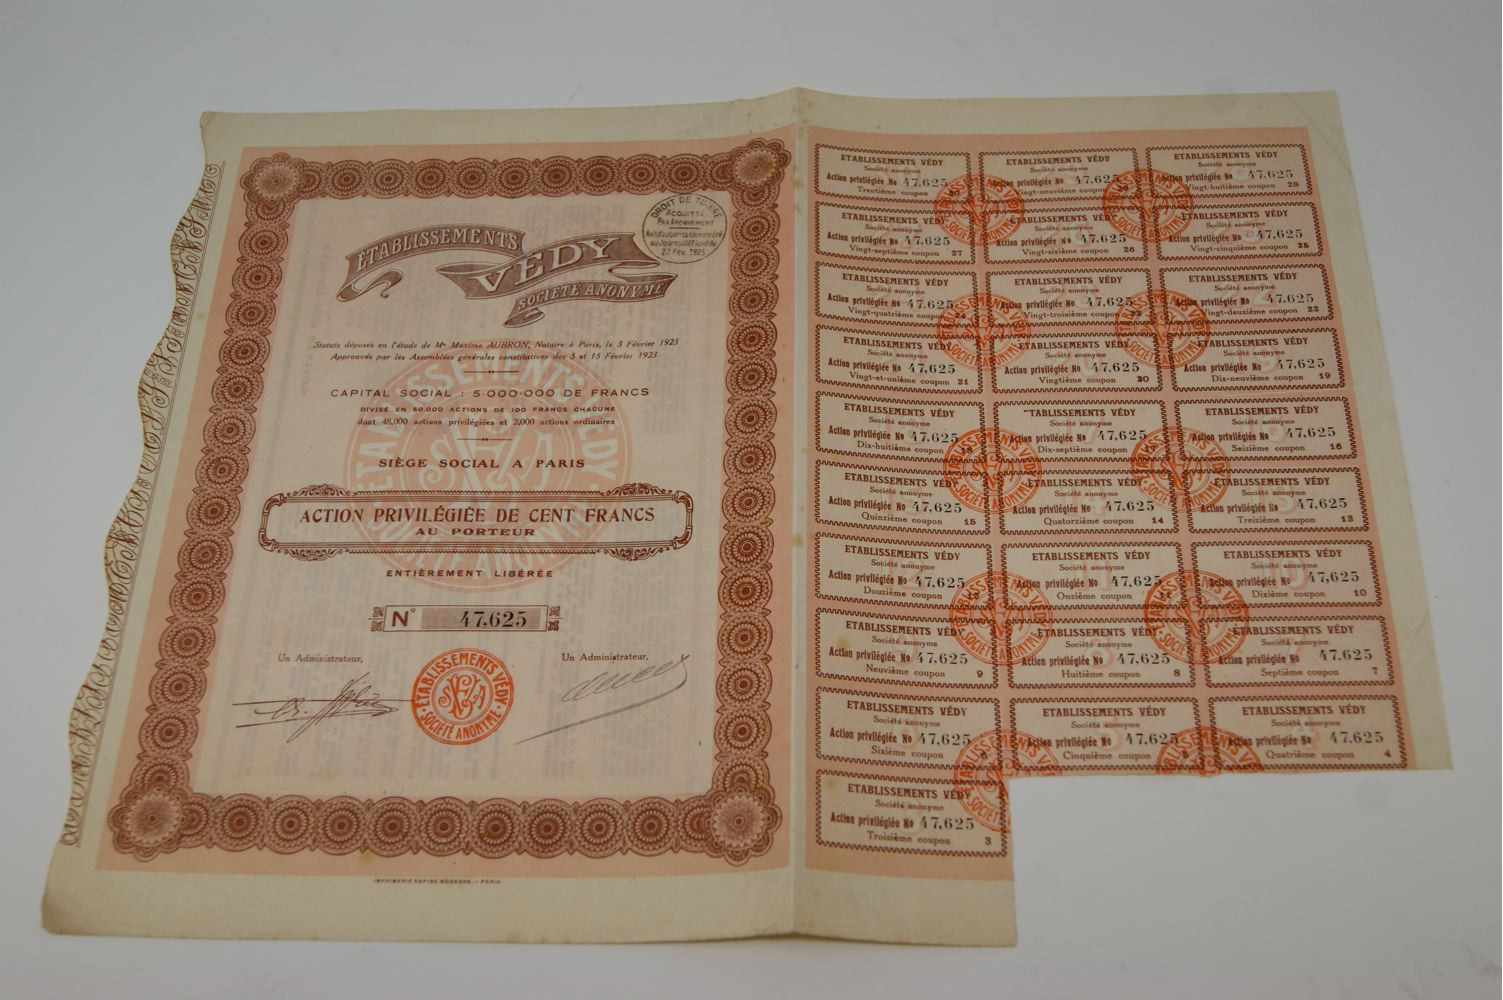 ÉTABLISSEMENTS
VÉDY
SOCIÉTÉ ANONYME
DROIT DE TIMBRE
ACQUITTÉ
PAR ABONNEMENT
Avis d'autorisation inséré
au Journal Officiel du
20 Fév. 1925
Statuts déposés en l'étude de Me Maxime AUBRON, Notaire à Paris, le 3 Février 1923
Approuvés par les Assemblées générales constitutives des 5 et 15 Février 1923
CAPITAL SOCIAL : 5.000.000 DE FRANCS
DIVISÉ EN 50.000 ACTIONS DE 100 FRANCS CHACUNE
dont 48,000 actions privilégiées et 2,000 actions ordinaires
SIÈGE SOCIAL A PARIS
ACTION PRIVILÉGIÉE DE CENT FRANCS
AU PORTEUR
ENTIÈREMENT LIBÉRÉE
N° 47.625
Un Administrateur,
Un Administrateur,
ÉTABLISSEMENTS VÉDY
SOCIÉTÉ ANONYME
IMPRIMERIE RAPIDE MODERNE. - PARIS
ETABLISSEMENTS VÉDY
Société anonyme
Action privilégiée No 47.625
Trentième coupon 30
ETABLISSEMENTS VÉDY
Société anonyme
Action privilégiée No 47.625
Vingt-neuvième coupon 29
ETABLISSEMENTS VÉDY
Société anonyme
Action privilégiée No 47.625
Vingt-huitième coupon 28
ETABLISSEMENTS VÉDY
Société anonyme
Action privilégiée No 47.625
Vingt-septième coupon 27
ETABLISSEMENTS VÉDY
Société anonyme
Action privilégiée No 47.625
Vingt-sixième coupon 26
ETABLISSEMENTS VÉDY
Société anonyme
Action privilégiée No 47.625
Vingt-cinquième coupon 25
ETABLISSEMENTS VÉDY
Société anonyme
Action privilégiée No 47.625
Vingt-quatrième coupon 24
ETABLISSEMENTS VÉDY
Société anonyme
Action privilégiée No 47.625
Vingt-troisième coupon 23
ETABLISSEMENTS VÉDY
Société anonyme
Action privilégiée No 47.625
Vingt-deuxième coupon 22
ETABLISSEMENTS VÉDY
Société anonyme
Action privilégiée No 47,625
Vingt-et-unième coupon 21
ETABLISSEMENTS VÉDY
Société anonyme
Action privilégiée No 47.625
Vingtième coupon 20
ETABLISSEMENTS VÉDY
Société anonyme
Action privilégiée No 47,625
Dix-neuvième coupon 19
ETABLISSEMENTS VÉDY
Société anonyme
Action privilégiée No 47.625
Dix-huitième coupon 18
ETABLISSEMENTS VÉDY
Société anonyme
Action privilégiée No 47.625
Dix-septième coupon
ETABLISSEMENTS VÉDY
Société anonyme
Action privilégiée No 47.625
Seizième coupon 16
ETABLISSEMENTS VÉDY
Société anonyme
Action privilégiée No 47.625
Quinzième coupon 15
ETABLISSEMENTS VÉDY
Société anonyme
Action privilégiée No 47.625
Quatorzième coupon 14
ETABLISSEMENTS VÉDY
Société anonyme
Action privilégiée No 47.625
Treizième coupon 13
ETABLISSEMENTS VÉDY
Société anonyme
Action privilégiée No 47.625
Douzième coupon 12
ETABLISSEMENTS VÉDY
Société anonyme
Action privilégiée No 47,625
Onzième coupon 11
ETABLISSEMENTS VÉDY
Société anonyme
Action privilégiée No 47,625
Dixième coupon 10
ETABLISSEMENTS VÉDY
Société anonyme
Action privilégiée No 47.625
Neuvième coupon 9
ETABLISSEMENTS VÉDY
Société anonyme
Action privilégiée No 47.625
Huitième coupon 8
ETABLISSEMENTS VÉDY
Société anonyme
Action privilégiée No 47.625
Septième coupon 7
ETABLISSEMENTS VÉDY
Société anonyme
Action privilégiée No 47,625
Sixième coupon 6
ETABLISSEMENTS VÉDY
Société anonyme
Action privilégiée No 47.625
Cinquième coupon 5
ETABLISSEMENTS VÉDY
Société anonyme
Action privilégiée No 47.625
Quatrième coupon 4
ETABLISSEMENTS VÉDY
Société anonyme
Action privilégiée No 47,625
Troisième coupon 3